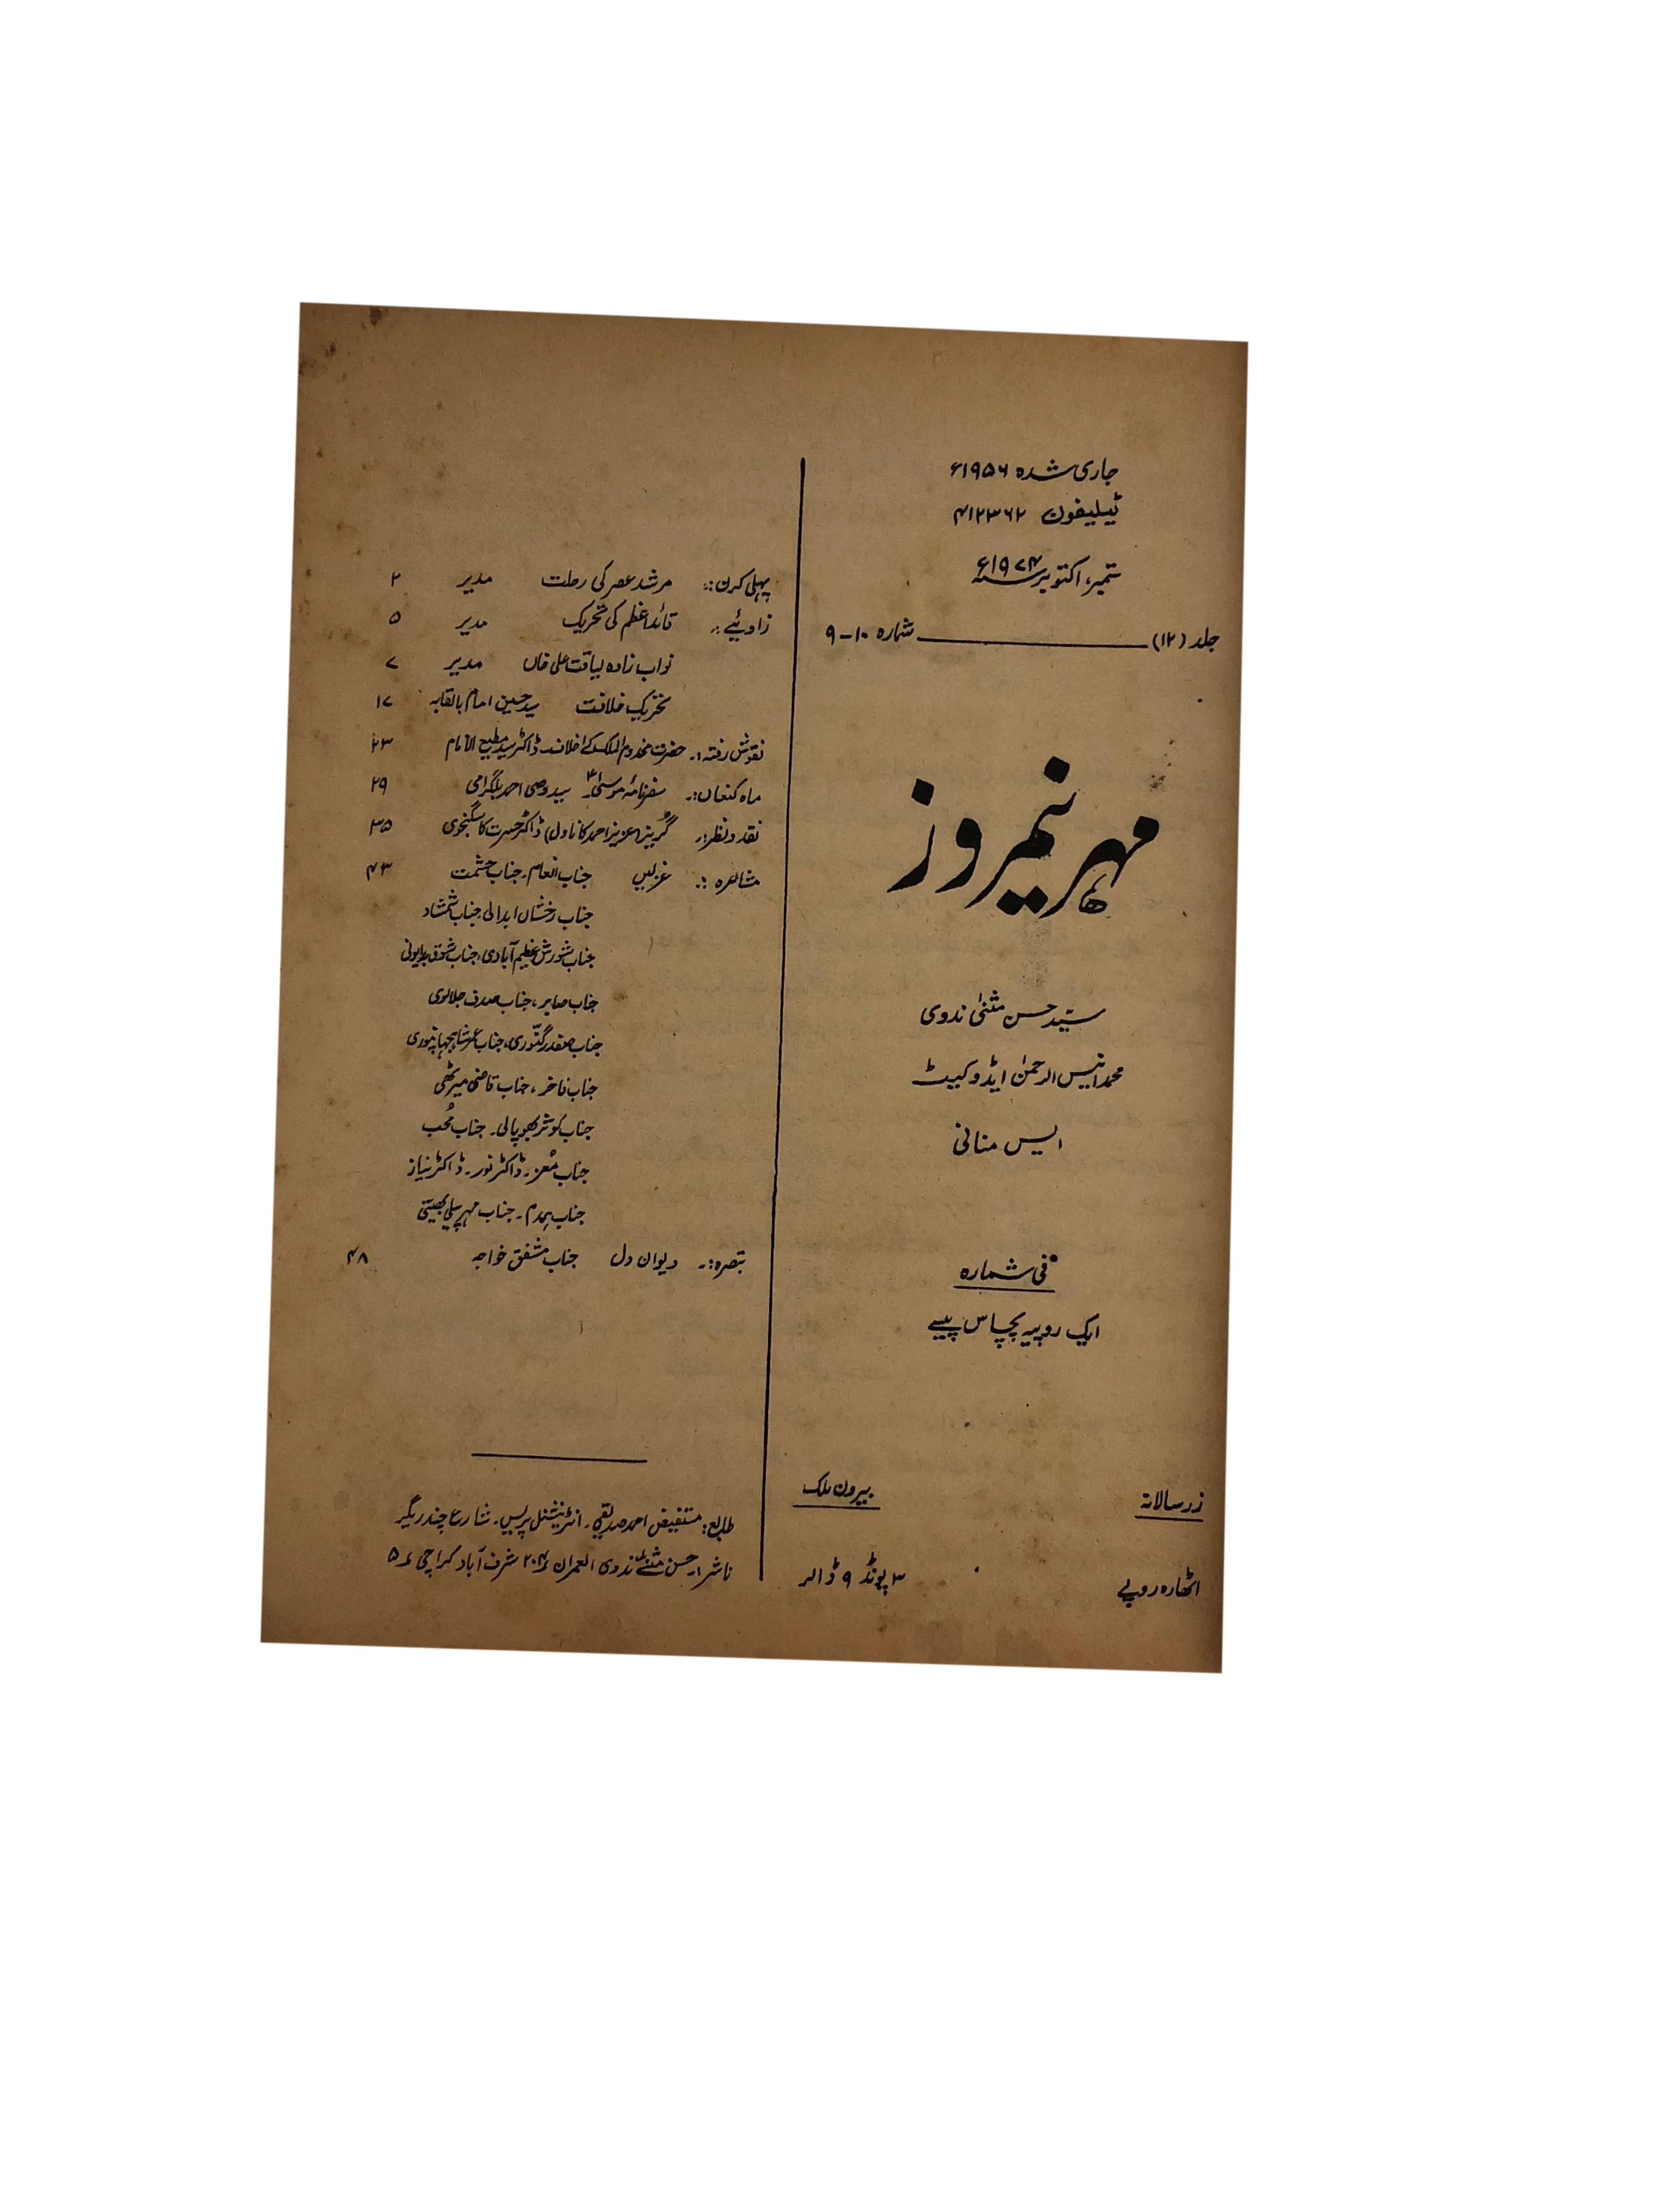 جاری شدہ ۱۹۵۶ء
ٹیلیفون ۴۱۲۳۶۲
ستمبر، اکتوبر سنہ ۱۹۷۴ء
جلد (۱۲) شمارہ ۱۰-۹
مہر نیمروز
سیّد حسن مثنیٰ ندوی
محمد انیس الرحمٰن ایڈوکیٹ
ایس منانی
فی شمارہ
ایک روپیہ پچاس پیسے
زر سالانہ بیرون ملک
اٹھارہ روپے ۳ پونڈ ۹ ڈالر
پہلی کرن:۔ مرشد عصر کی رحلت مدیر ۲
زاویئے:۔ قائد اعظم کی تحریک مدیر ۵
نواب زادہ لیاقت علی خاں مدیر ۷
تحریک خلافت سید حسین امام بالقابہ ۱۷
نقوش رفتہ:۔ حضرت مخدوم الملک کے اخلاف ڈاکٹر سید مطیع الامام ۲۳
ماہ کنعاں:۔ سفرنامۂ موسیٰؑ سید وصی احمد بلگرامی ۲۹
نقد و نظر:۔ گریز (عزیز احمد کا ناول) ڈاکٹر حسرت کاسگنجوی ۳۵
مشاعرہ:۔ غزلیں جناب انعام۔ جناب حشمت ۴۳
جناب رخشاں ابدالی، جناب شمشاد
جناب شورش عظیم آبادی، جناب شوق بدایونی
جناب صابر، جناب صدف جلالوی
جناب صفدر گنّوری، جناب عمر شاہجہانپوری
جناب فاخر، جناب قاضی میرٹھی
جناب کوثر بھوپالی۔ جناب مُحب
جناب مُعز۔ ڈاکٹر نور۔ ڈاکٹر نیاز
جناب ہمدم۔ جناب مہر پیلی بھیتی
تبصرہ:۔ دیوان دل جناب مشفق خواجہ ۴۸
طابع: مستفیض احمد صدیقی۔ انٹرنیشنل پریس۔ شارع چندریگر
ناشر: حسن مثنیٰ ندوی العمران ۲۰۴ شرف آباد کراچی ۵